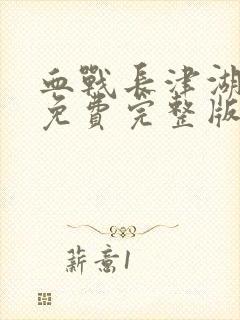 血戰長津湖
免費完整版
薪意1